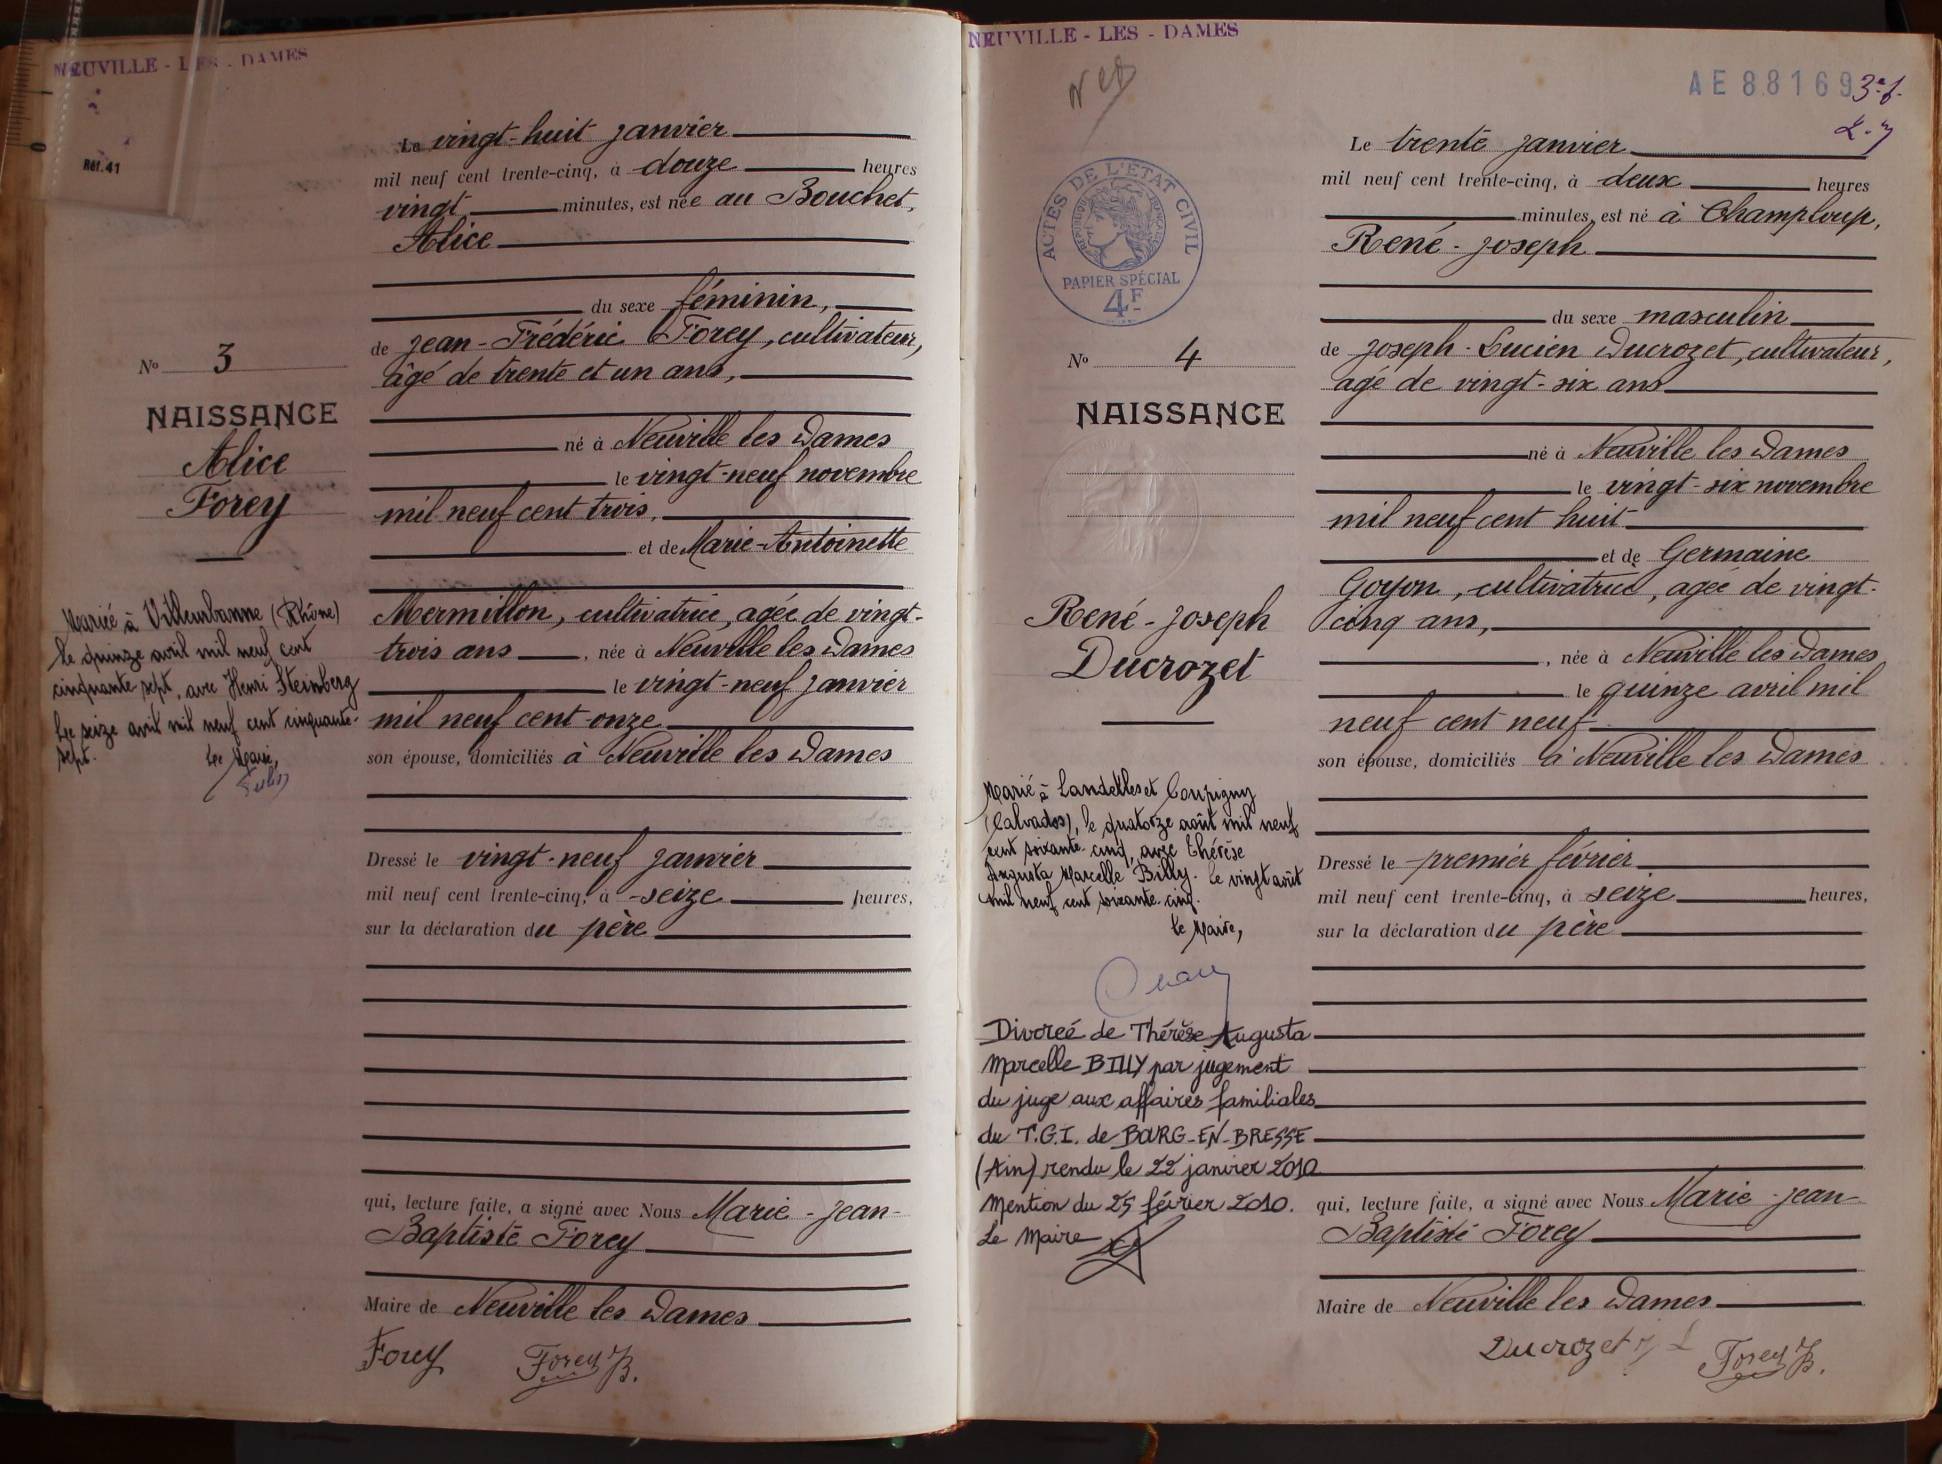 NEUVILLE - LES - DAMES
Réf. 41
Le vingt-huit janvier
mil neuf cent trente-cinq, à douze heures
vingt minutes, est née au Bouchet,
Alice
du sexe féminin,
de Jean-Frédéric Forey, cultivateur,
âgé de trente et un ans,
né à Neuville les Dames
le vingt-neuf novembre
mil neuf cent trois,
et de Marie-Antoinette
Mermillon, cultivatrice, agée de vingt-
trois ans, née à Neuville les Dames
le vingt-neuf janvier
mil neuf cent onze
son épouse, domiciliés à Neuville les Dames
Dressé le vingt-neuf janvier
mil neuf cent trente-cinq, à seize heures,
sur la déclaration du père
qui, lecture faite, a signé avec Nous Marie-Jean-
Baptiste Forey
Maire de Neuville les Dames
Forey Forey JB.
No 3
NAISSANCE
Alice
Forey
Mariée à Villeurbanne (Rhône)
le quinze avril mil neuf cent
cinquante sept, avec Henri Steinberg
Le seize avril mil neuf cent cinquante-
sept.
Le Maire,
NEUVILLE - LES - DAMES
AE 88169
3e f.
ACTES DE L'ETAT CIVIL
RÉPUBLIQUE FRANÇAISE
PAPIER SPÉCIAL
4F
No 4
NAISSANCE
René-Joseph
Ducrozet
Marié à Landelles et Coupigny
(Calvados), le quatorze août mil neuf
cent soixante-cinq, avec Thérèse
Augusta Marcelle Billy. Le vingt août
mil neuf cent soixante-cinq.
Le Maire,
Divorcé de Thérèse Augusta
Marcelle BILLY par jugement
du juge aux affaires familiales
du T.G.I. de BOURG-EN-BRESSE
(Ain) rendu le 22 janvier 2010
Mention du 25 février 2010.
Le Maire
Le trente janvier
mil neuf cent trente-cinq, à deux heures
minutes, est né à Champloup,
René-Joseph
du sexe masculin
de Joseph-Lucien Ducrozet, cultivateur,
agé de vingt-six ans
né à Neuville les Dames
le vingt-six novembre
mil neuf cent huit
et de Germaine
Goyon, cultivatrice, agée de vingt-
cinq ans,
, née à Neuville les Dames
le quinze avril mil
neuf cent neuf
son épouse, domiciliés à Neuville les Dames
Dressé le premier février
mil neuf cent trente-cinq, à seize heures,
sur la déclaration du père
qui, lecture faite, a signé avec Nous Marie-Jean-
Baptiste Forey
Maire de Neuville les Dames
Ducrozet Forey JB.